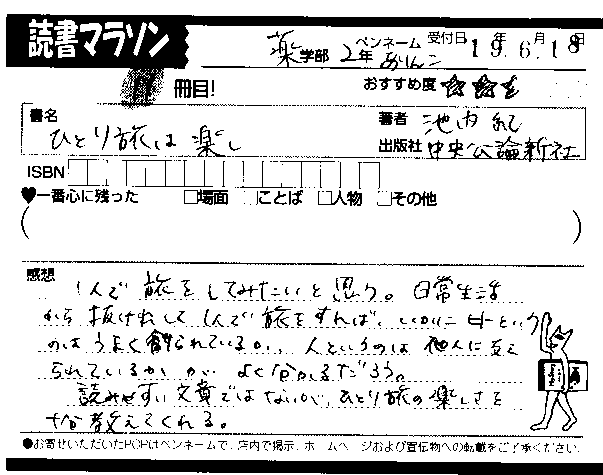 読書マラソン
薬学部 2年 ペンネーム ありんこ 受付日 19年6月18日
11冊目! おすすめ度 ★★★
書名 ひとり旅は楽し
著者 池内 紀
出版社 中央公論新社
ISBN
♥一番心に残った □場面 □ことば □人物 □その他
( )
感想
1人で旅をしてみたいと思う。日常生活
から抜け出して1人で旅をすれば、いかに日本という
のはうまく創られているか、人というのは他人に支え
られているかがよく分かるだろう。
読みやすい文章ではないが、ひとり旅の楽しさを
教えてくれる。
●お寄せいただいたPOPはペンネームで、店内で掲示、ホームページおよび宣伝物への転載をご了承ください。